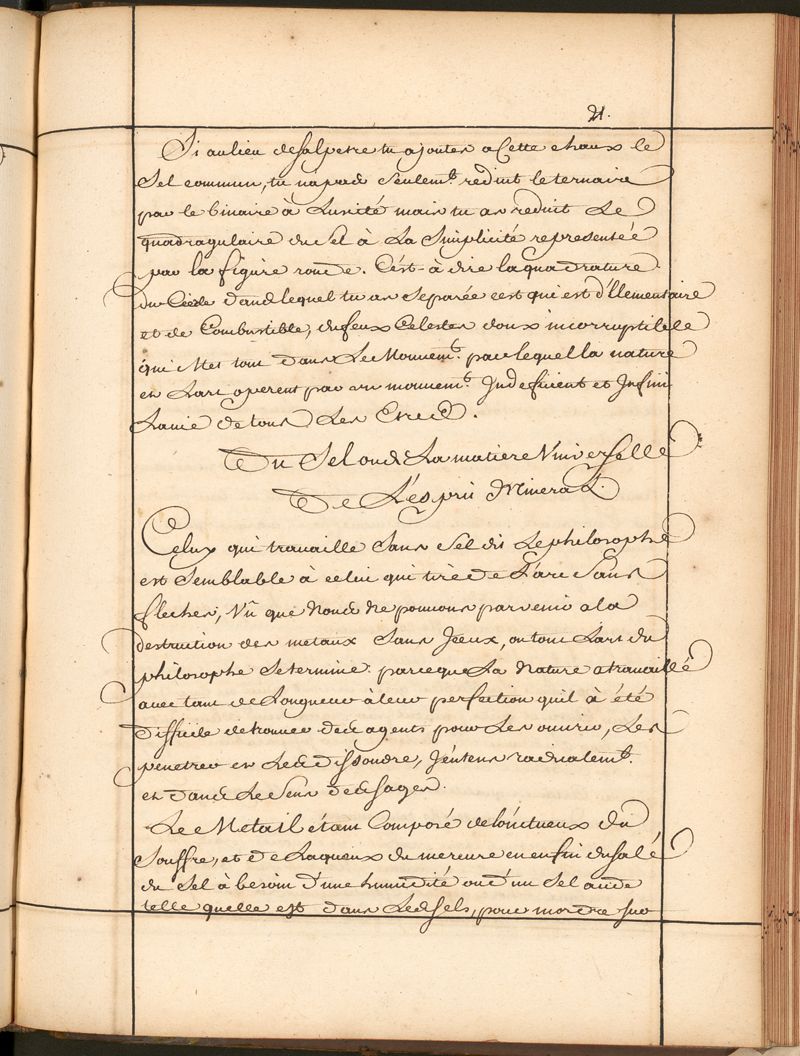 21.
Si au lieu de salpetre tu ajoutes a Cette chaux le
Sel commun, tu napas seulemt. reduit le ternaire
par le binaire à Lunité mais tu as reduit Le
quadragulaire du Sel à La Simplicité representéé
par la figure ronde. C'ést-à dire la quadrature
du Cercle dans lequel tu as separée cest qui est d'Ellementaire
et de Combustible, du feux Celestes doux incorruptible
qui Met tout dans Le Mouvemt. par lequel la nature
et Lart operent par un mouvemt. Indeficient et Infini
Lanie de tous Les Etres.
Du Sel ou de La matiere Vniverselle
De L'esprit Mineral.
Celuy qui travaille Sans Sel dit Le philosophe
est Semblable à celui qui tire de L'arc Sans
fleches, Vû que Nous Ne pouvons parvenir a la
destruction des metaux Sans Iceux, ou tout Lart du
philosophe Se termine. parceque La Nature a travaillé
avec tant de Longueur à leur perfection quil à été
difficile de trouver des agents pour Les ouvrir, Les
penetrer et Les dissoudre, J'entens radicalemt.
et dans Le Sens des sages.
Le Metail étant Composé de lonctueux du
Souffre, et de Laqueux du mercure et enfin du salé
du Sel à besoin d'une humidité ou d'un Sel acide
telle quelle est dans Les sels, pour mordre sur